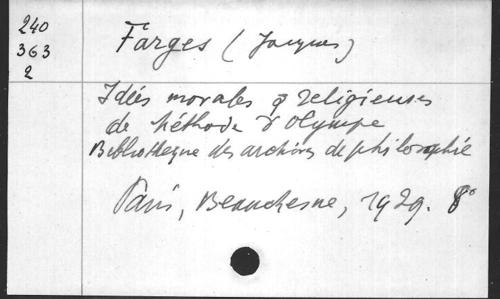 240
363
2
Farges (Jacques)
Idées morales & religieuses
de Méthode d'Olympe
Bibliothèque des archives de philosophie
Paris, Beauchesne, 1929. 8°